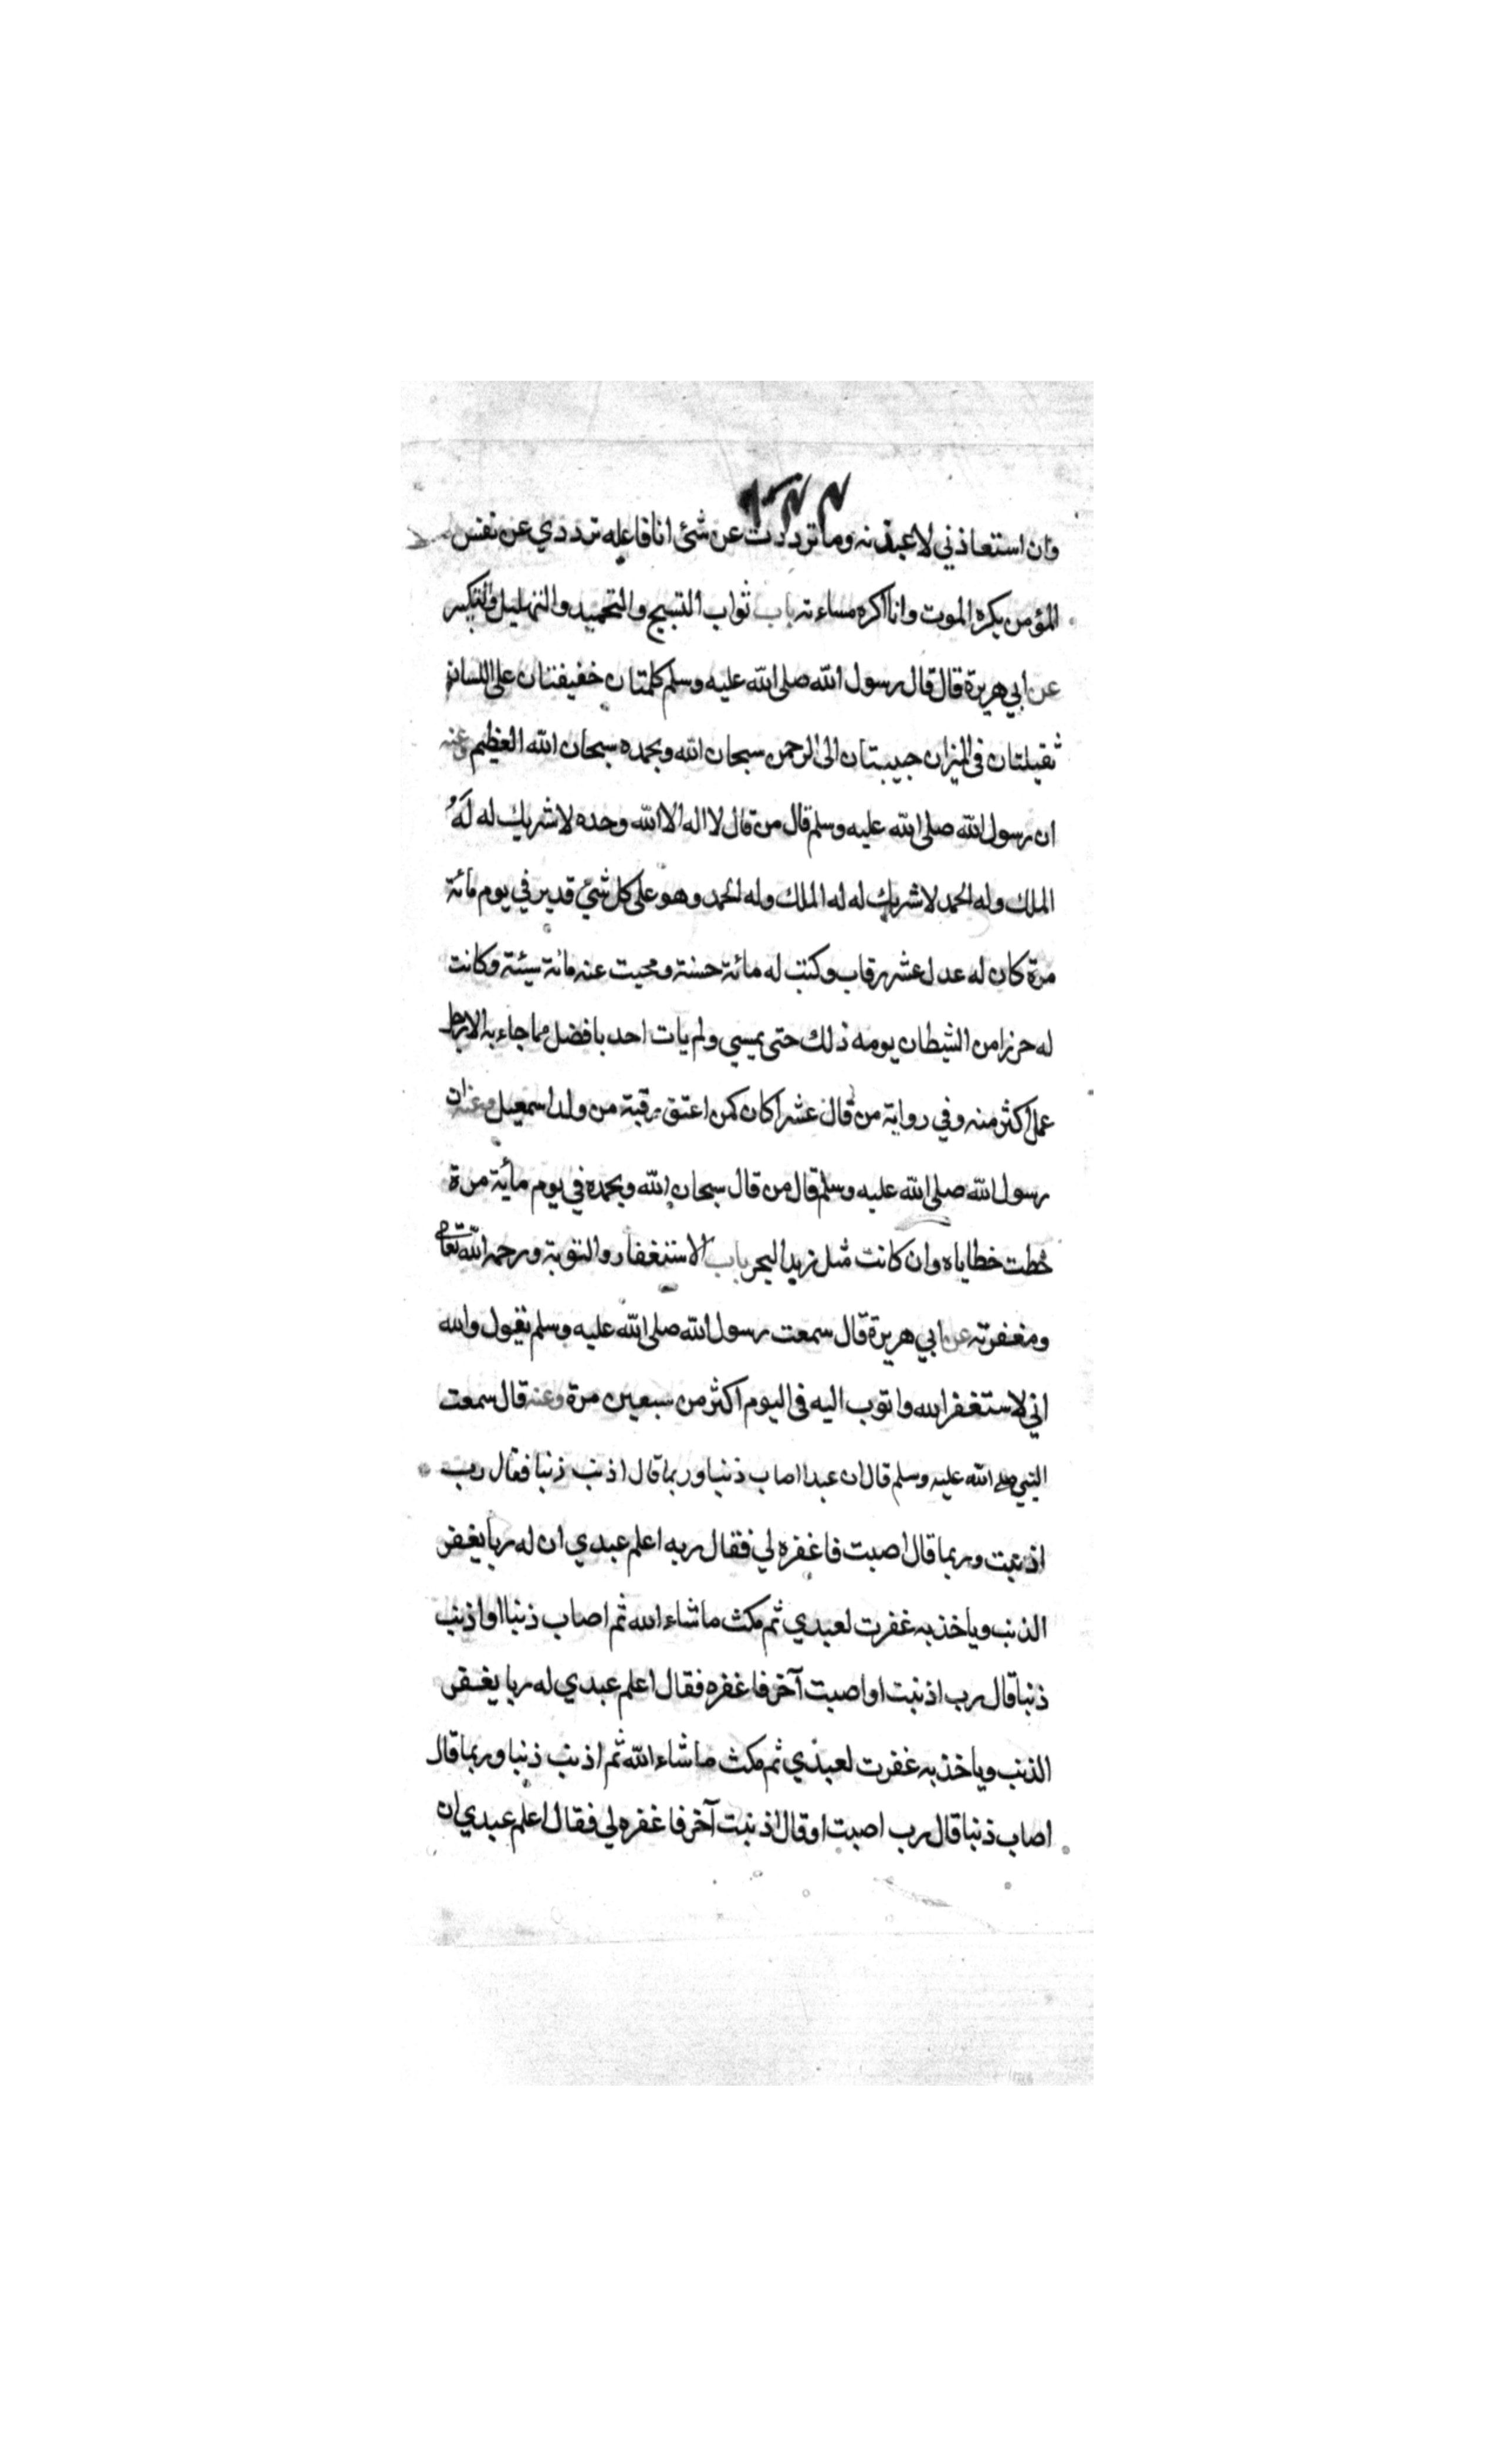 وان استعاذني لاعيذنه وما ترددت عن شئ انا فاعله ترددي عن نفس
المؤمن يكره الموت وانا اكره مساءته باب ثواب التسبيح والتحميد والتهليل والتكبير
عن ابي هريرة قال قال رسول الله صلى الله عليه وسلم كلمتان خفيفتان على اللسان
ثقيلتان في الميزان حبيبتان الى الرحمن سبحان الله وبحمده سبحان الله العظيم وعنه
ان رسول الله صلى الله عليه وسلم قال من قال لا اله الا الله وحده لا شريك له لَهُ
الملك وله الحمد لا شريك له له الملك وله الحمد وهو على كل شئ قدير في يوم مائة
مرة كان له عدل عشر رقاب وكتب له مائة حسنة ومحيت عنه مائة سيئة وكانت
له حرزا من الشيطان يومه ذلك حتى يمسي ولم يات احد بافضل مما جاء به الا رجل
عمل اكثر منه وفي رواية من قال عشرا كان كمن اعتق رقبة من ولد اسمعيل وعنه ان
رسول الله صلى الله عليه وسلم قال من قال سبحان الله وبحمده في يوم مائة مرة
حطت خطاياه وان كانت مثل زبد البحر باب الاستغفار والتوبة ورحمة الله تعالى
ومغفرته عن ابي هريرة قال سمعت رسول الله صلى الله عليه وسلم يقول والله
اني لاستغفر الله واتوب اليه في اليوم اكثر من سبعين مرة وعنه قال سمعت
النبي صلى الله عليه وسلم قال ان عبدا اصاب ذنبا وربما قال اذنب ذنبا فقال رب
اذنبت وربما قال اصبت فاغفره لي فقال ربه اعلم عبدي ان له ربا يغفر
الذنب وياخذ به غفرت لعبدي ثم مكث ما شاء الله ثم اصاب ذنبا او اذنب
ذنبا قال رب اذنبت او اصبت آخر فاغفره فقال اعلم عبدي له ربا يغفر
الذنب وياخذ به غفرت لعبدي ثم مكث ما شاء الله ثم اذنب ذنبا وربما قال
اصاب ذنبا قال رب اصبت او قال اذنبت آخر فاغفره لي فقال اعلم عبدي ان